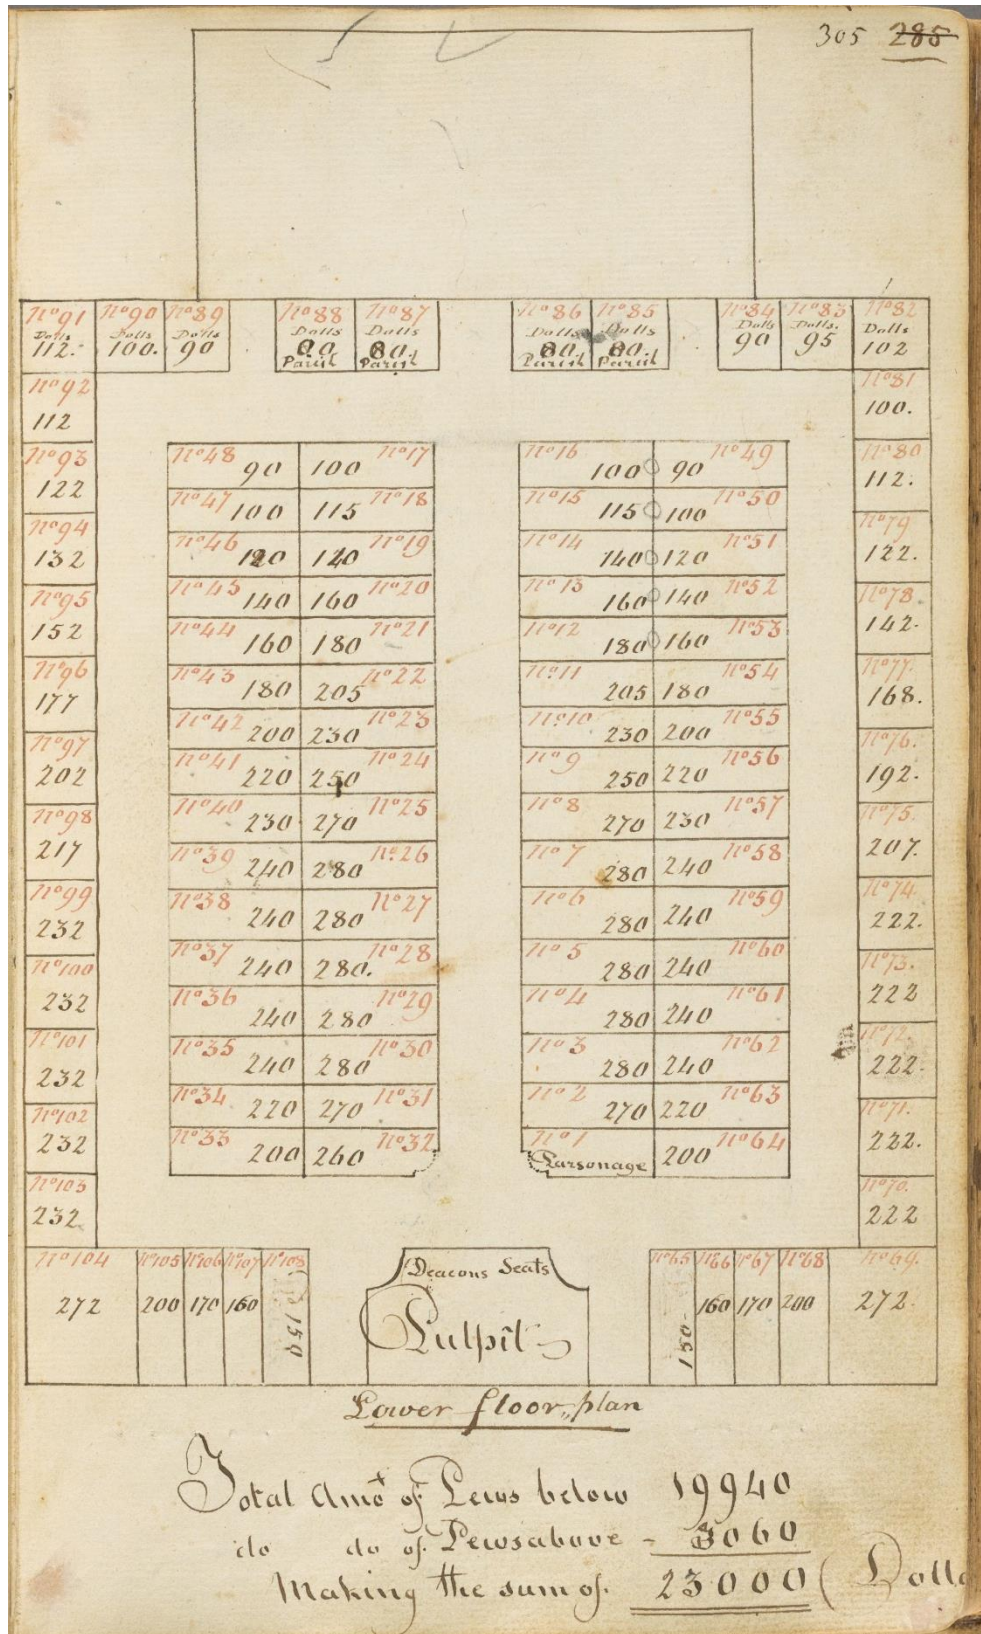 305 285
No 91 No 90 No 89 No 88 No 87 No 86 No 85 No 84 No 83 No 82
Dolls Dolls Dolls Dolls Dolls Dolls Dolls Dolls Dolls. Dolls
112. 100. 90 80. 80. 80. 90 95 102
Parish Parish Parish Parish
No 92
112
No 93
122
No 94
132
No 95
152
No 96
177
No 97
202
No 98
217
No 99
232
No 100
232
No 101
232
No 102
232
No 103
232
No 48 90 100 No 17
No 47 100 115 No 18
No 46 120 140 No 19
No 45 140 160 No 20
No 44 160 180 No 21
No 43 180 205 No 22
No 42 200 230 No 23
No 41 220 250 No 24
No 40 230 270 No 25
No 39 240 280 No 26
No 38 240 280 No 27
No 37 240 280. No 28
No 36 240 280 No 29
No 35 240 280 No 30
No 34 220 270 No 31
No 33 200 260 No 32
No 16 100 90 No 49
No 15 115 100 No 50
No 14 140 120 No 51
No 13 160 140 No 52
No 12 180 160 No 53
No 11 205 180 No 54
No 10 230 200 No 55
No 9 250 220 No 56
No 8 270 230 No 57
No 7 280 240 No 58
No 6 280 240 No 59
No 5 280 240 No 60
No 4 280 240 No 61
No 3 280 240 No 62
No 2 270 220 No 63
No 1 Parsonage 200 No 64
No 81
100.
No 80
112.
No 79
122.
No 78.
142.
No 77.
168.
No 76.
192.
No 75.
207.
No 74.
222.
No 73.
222
No 72.
222.
No 71.
222.
No 70.
222
No 104 No 105 No 106 No 107 No 108
272 200 170 160 150
Deacons Seats
Pulpit
No 65 No 66 No 67 No 68 No 69.
150 160 170 200 272.
Lower floor plan
Total Amot of Pews below 19940
do do of Pews above - 3060
Making the sum of. 23000 ( Dolls